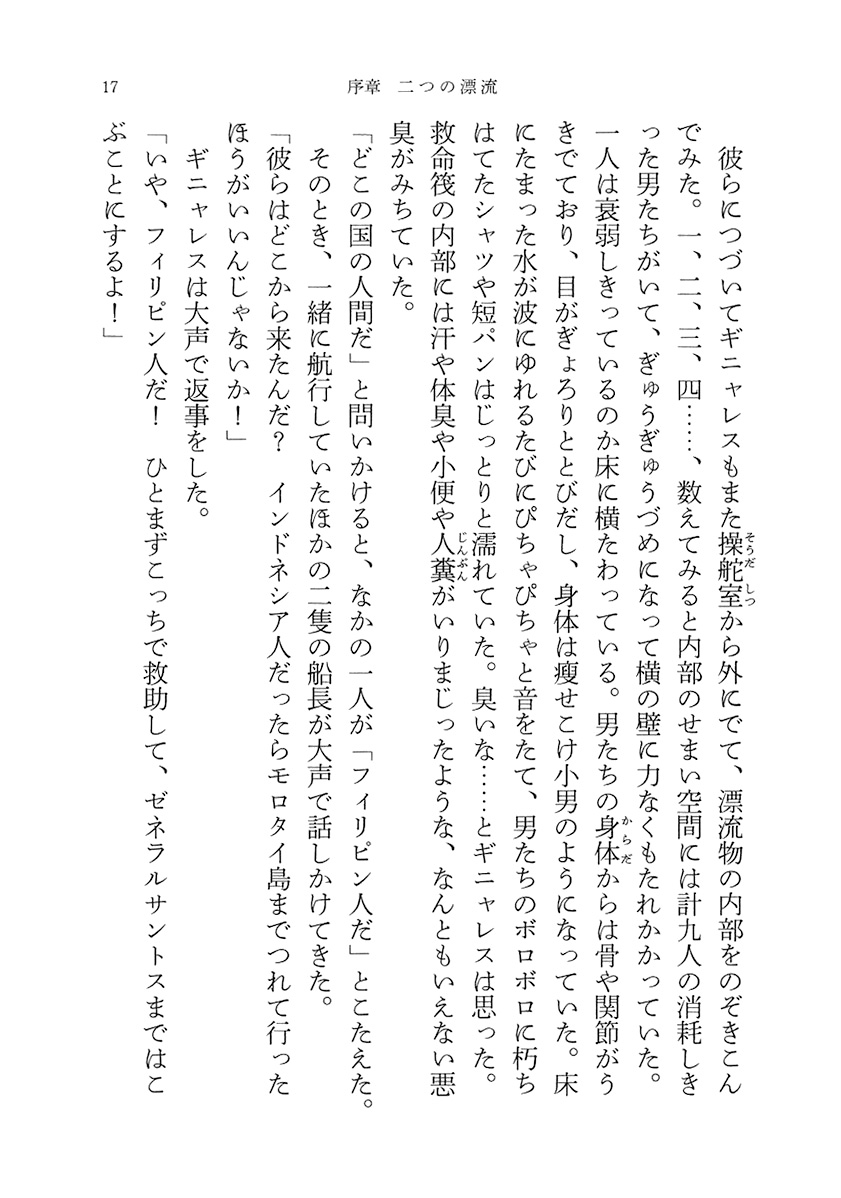 17
序章 二つの漂流
彼らにつづいてギニャレスもまた操舵室から外にでて、漂流物の内部をのぞきこん
でみた。一、二、三、四……、数えてみると内部のせまい空間には計九人の消耗しき
った男たちがいて、ぎゅうぎゅうづめになって横の壁に力なくもたれかかっていた。
一人は衰弱しきっているのか床に横たわっている。男たちの身体からは骨や関節がう
きでており、目がぎょろりととびだし、身体は瘦せこけ小男のようになっていた。床
にたまった水が波にゆれるたびにぴちゃぴちゃと音をたて、男たちのボロボロに朽ち
はてたシャツや短パンはじっとりと濡れていた。臭いな……とギニャレスは思った。
救命筏の内部には汗や体臭や小便や人糞がいりまじったような、なんともいえない悪
臭がみちていた。
「どこの国の人間だ」と問いかけると、なかの一人が「フィリピン人だ」とこたえた。
そのとき、一緒に航行していたほかの二隻の船長が大声で話しかけてきた。
「彼らはどこから来たんだ？ インドネシア人だったらモロタイ島までつれて行った
ほうがいいんじゃないか！」
ギニャレスは大声で返事をした。
「いや、フィリピン人だ！ ひとまずこっちで救助して、ゼネラルサントスまではこ
ぶことにするよ！」